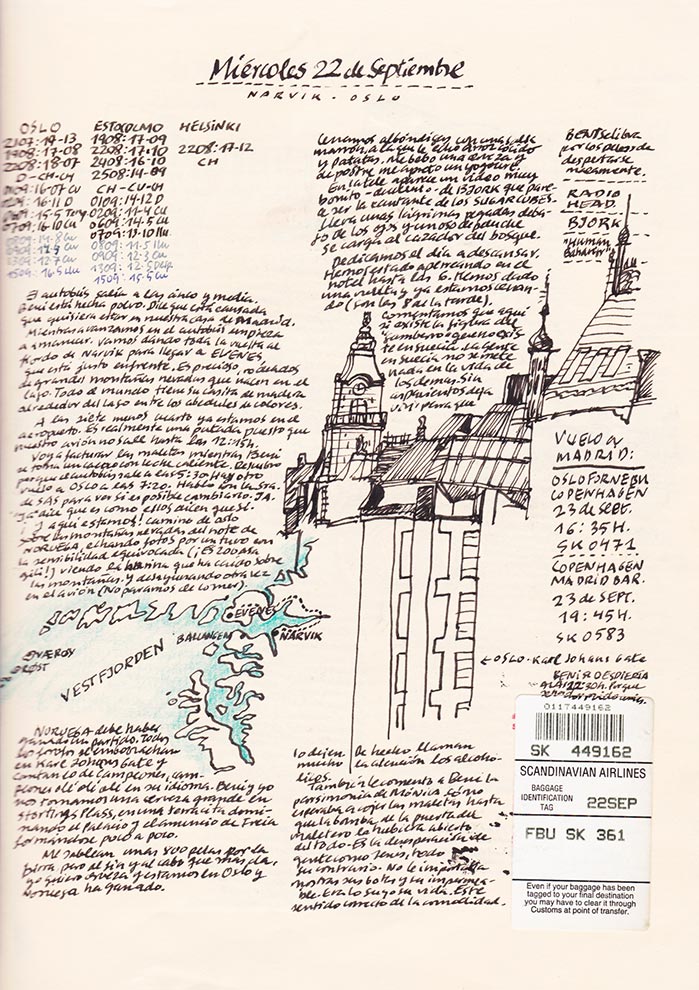 Miércoles 22 de Septiembre
NARVIK - OSLO
OSLO ESTOCOLMO HELSINKI
2107:19-13 1908:17-09
1908:17-08 2208:17-10 2208:17-12
2208:18-07 2408:16-10 CH
D-CH-CH 2508:14-09
0109:16-07 CU CH-CU-CH
16-11 D 0109:14-12 D
15-5 0209:11-4 CU
0709:16-10 CU 0609:14-5 CU
0709:13-10 Nu
0809:11-5 Nu
0909:12-3 CU
1309:12-5
1509:16-5 Nu 1509:15-5 CU
El autobús salía a las cinco y media.
Beni está hecha polvo. Dice que está cansada
que quisiera estar en nuestra casa de Madrid.
Mientras avanzamos en el autobús empieza
a amanecer. Vamos dando toda la vuelta al
fiordo de Narvik para llegar a EVENES,
que está justo enfrente. Es precioso, rodeados
de grandes montañas nevadas que nacen en el
lago. Todo el mundo tiene su casita de madera
alrededor del lago entre los abedules de colores.
A las siete menos cuarto ya estamos en el
aeropuerto. Es realmente una putada puesto que
nuestro avión no sale hasta las 12:15h.
Voy a facturar las maletas mientras Beni
se toma un cacao con leche caliente. Descubro
porque el autobús sale a las 5:30. Hay otro
vuelo a OSLO a las 7:20. Hablo con la Sra.
de SAS para ver si es posible cambiarlo. JA.
"Ja" dice que es como ellos dicen que sí.
Y aquí estamos! camino de Oslo
sobre las montañas nevadas del norte de
NORUEGA, echando fotos por un tubo con
la sensibilidad equivocada (¡Es 200 asa
gili!) viendo la harina que ha caído sobre
las montañas. y desayunando otra vez
en el avión (No paramos de comer).
EVENES
BALLANGEN
NARVIK
VÆRØY
RØST
VESTFJORDEN
NORUEGA debe haber
ganado un partido. Todos
los forofos se emborrachan
en Karl Johans Gate y
cantan lo de Campeones, cam-
peones olé olé olé en su idioma. Beni y yo
nos tomamos una cerveza grande en
Stortings Plass, en una terracita domi-
nando el Palacio y el anuncio de Freia
formándose poco a poco.
Me sablean unas 800 pelas por la
birra pero al fin y al cabo que mas da,
yo quiero cerveza y estamos en Oslo y
Noruega ha ganado.
Cenamos albóndigas con una salsa
marrón, a la que le echo arroz cocido
y patatas. Me bebo una cerveza y
de postre me aprieto un yogourt.
En la tele aparece un video muy
bonito - de BJORK que pare-
ce ser la cantante de los SUGARCUBES.
Lleva unas lágrimas pegadas deba-
jo de los ojos y un oso de peluche
se carga al cazador del bosque.
Dedicamos el día a descansar.
Hemos estado apalancados en el
hotel hasta las 6. Hemos dado
una vuelta y ya estamos cenan-
do (son las 8 de la tarde).
Comentamos que aquí
si existe la figura del
gamberro que no exis-
te en suecia. La gente
en suecia no se mete
nada en la vida de
los demas. Sin
aspavientos deja
vivir para que
lo dejen. De hecho llaman
mucho la atención los alcohó-
licos.
También le comento a Beni la
parsimonia de MÓNICA. Cómo
esperaba a cojer las maletas hasta
que la bomba de la puerta del
maletero la hubiera abierto
del todo. Es la desesperación de
gente como Jesús, todo
su contrario. No le importaba
mostrar sus botas y su impermea-
ble. Era lo suyo su vida. Este
sentido correcto de la comodidad.
BENI se libra
por los pelos de
despertarse
nuevamente.
RADIO
HEAD.
BJORK
"Human
Behaviour"
VUELO A
MADRID:
OSLO FORNEBU
COPENHAGEN
23 de SEPT.
16:35H.
SK0471
COPENHAGEN
MADRID BAR.
23 de SEPT.
19:45H.
SK 0583
← OSLO - Karl Johans Gate
BENI SE DESPIERTA
A LAS 12:30h. Porque
0117449162
SK 449162
SCANDINAVIAN AIRLINES
BAGGAGE
IDENTIFICATION
TAG
22SEP
FBU SK 361
Even if your baggage has been
tagged to your final destination
you may have to clear it through
Customs at point of transfer.